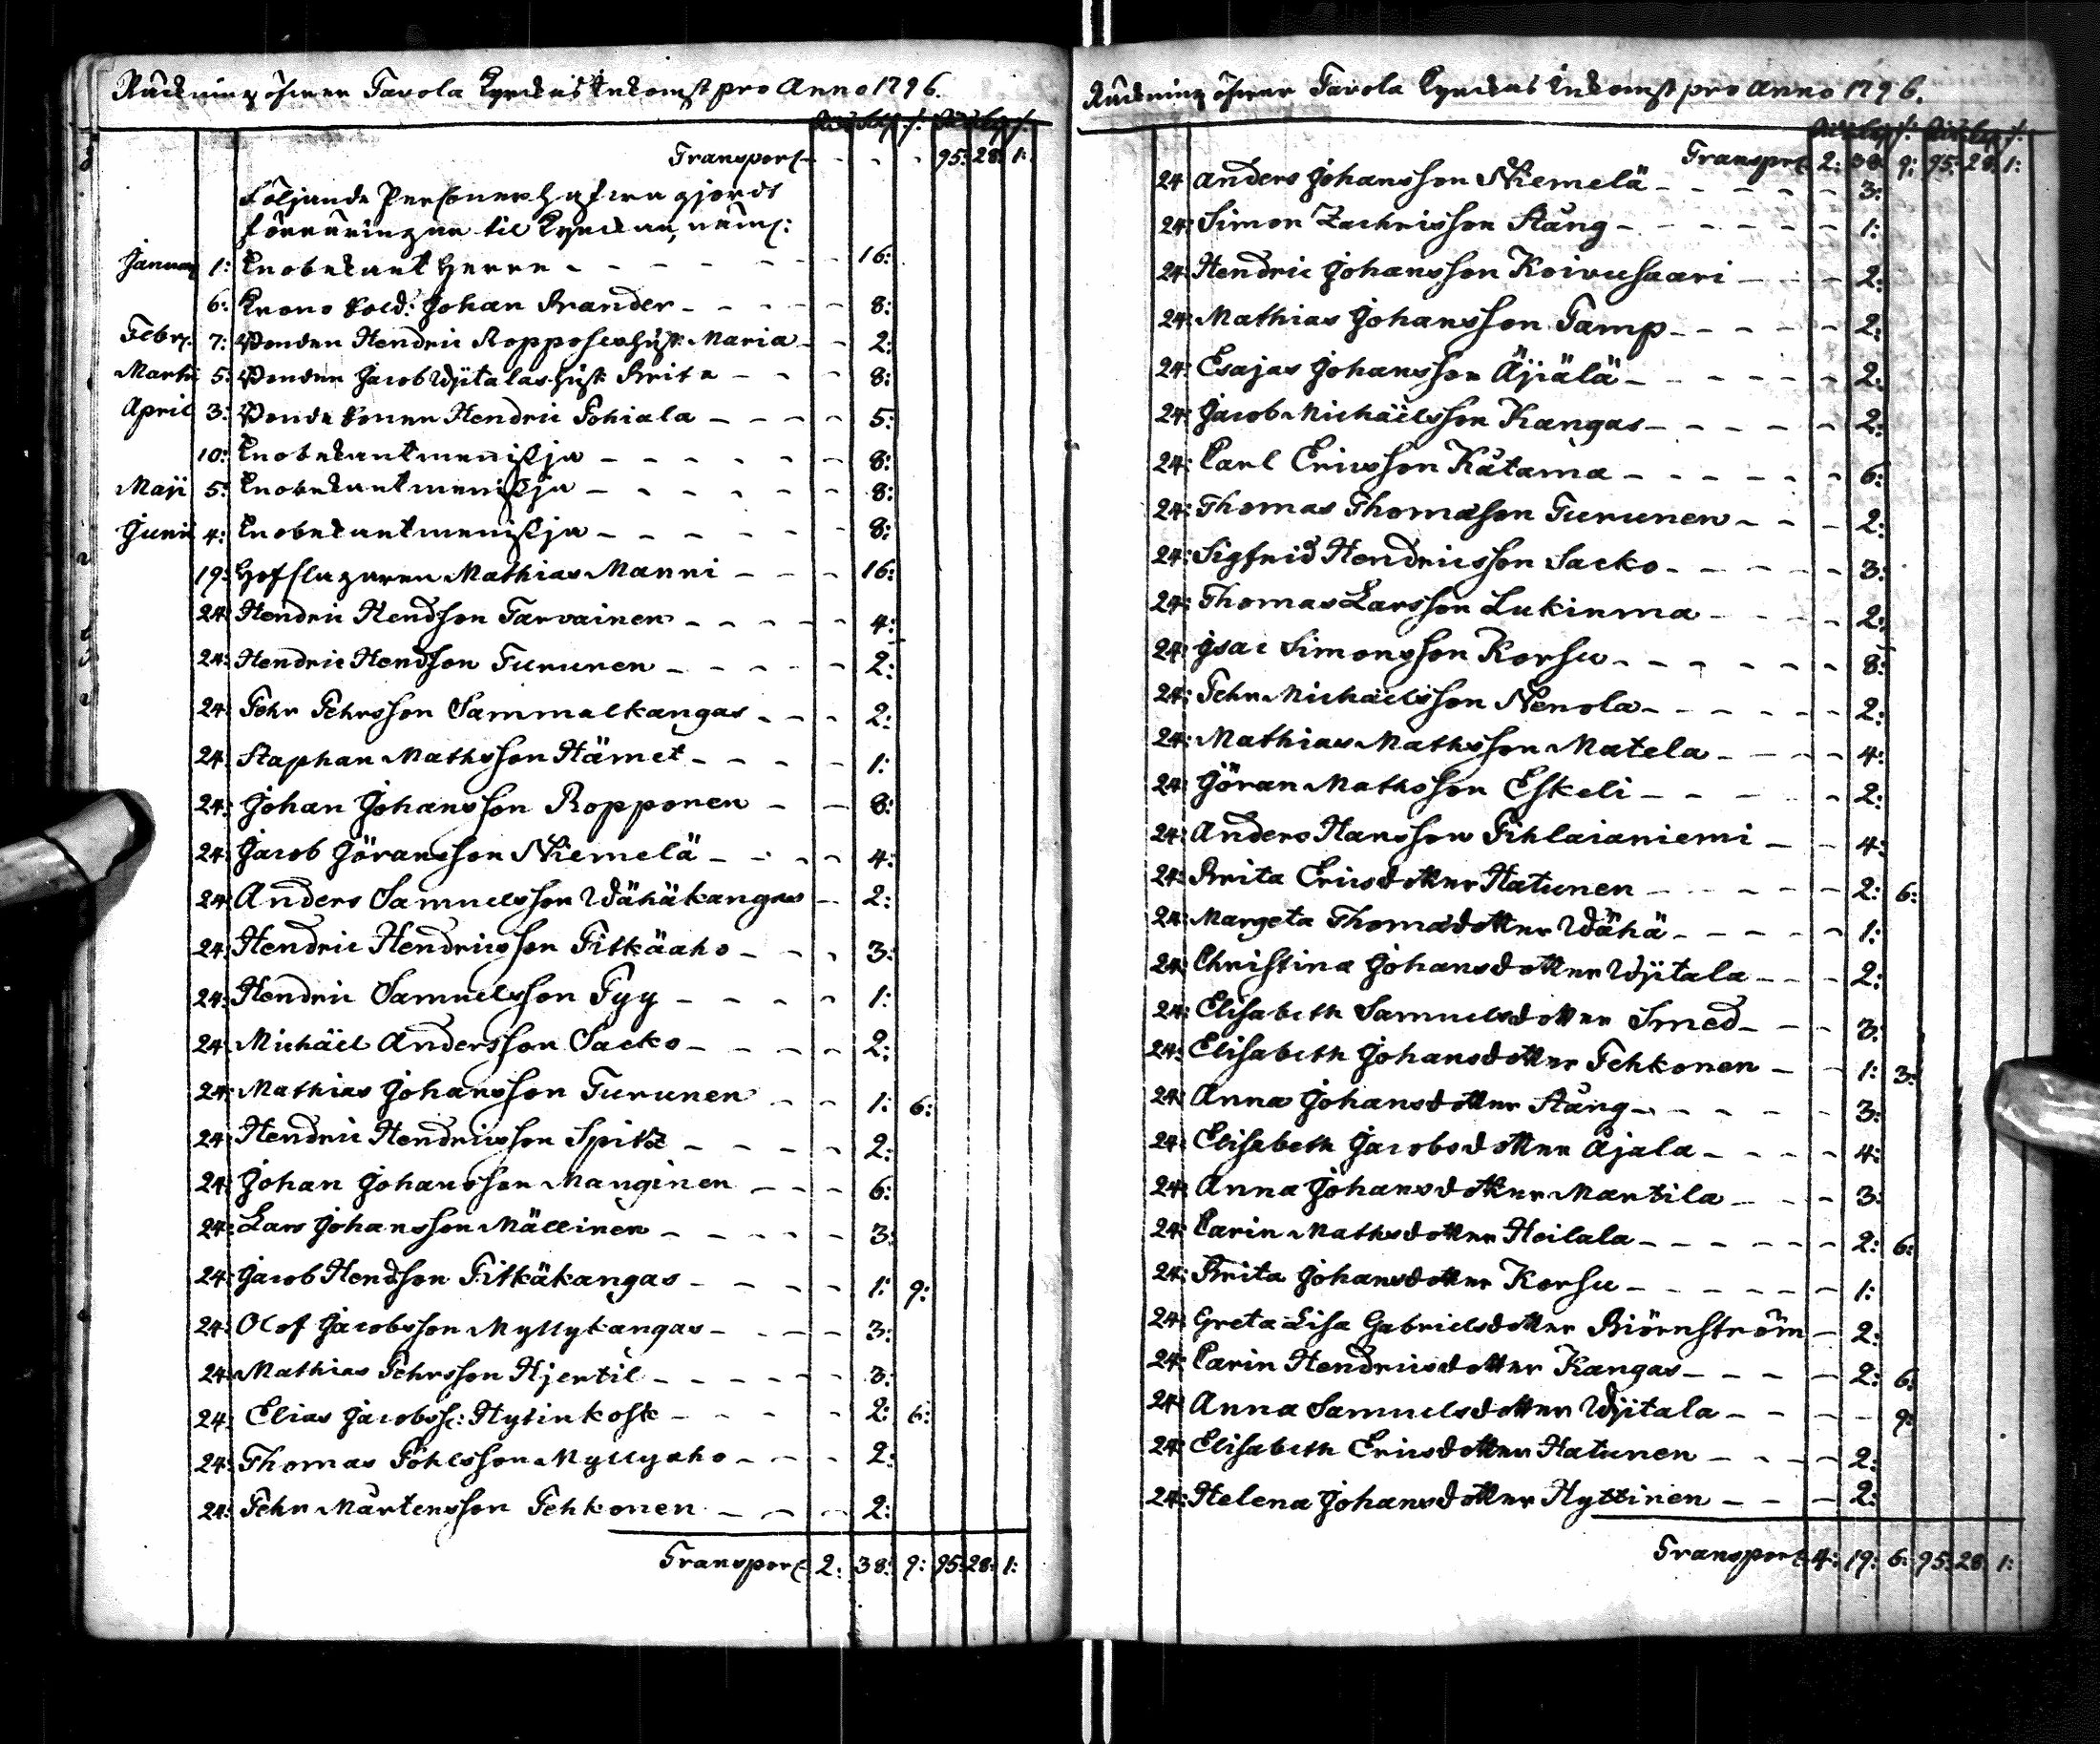 Räckning öfwer Tavola Kyrckas Inkomst pro Anno 1796.
Rdr sk. /: Rdr sk. /:
Transport - - - 95: 28: 1:
Följande Personer hafwa gjordt
föräringar til Kyrckan, näml:
Januarii 1: En obekant Herre - - - 16:
6: Krono Vold: Johan Brander - - - 8:
Febr. 7: Bonden Hendric Ropposes hust. Maria - - 2:
Martii 5: Bonden Jacob Wijtalas hust Brita - - - 8:
April 3: Bondesonen Hendric Pohiala - - - 5:
10: En obekant meniskja - - - 8:
Maji 5: En obekant meniskja - - - 8:
Junii 4: En obekant meniskja - - - 8:
19: Hofslagaren Mathias Manni - - - 16:
24: Hendric Hendsson Tarvainen - - - 4:
24: Hendric Hendsson Turunen - - - 2:
24: Pehr Pehrsson Sammalkangas - - - 2:
24: Staphan Mathsson Hämet - - - 1:
24: Johan Johansson Ropponen - - 8:
24: Jacob Göransson Niemelä - - - 4:
24: Anders Samuelsson Wähäkangas - 2:
24: Hendric Hendricsson Pitkäaho - - - 3:
24: Hendric Samuelsson Pyy - - - 1:
24: Michäel Andersson Sacko - - - 2:
24: Mathias Johansson Turunen - - 1: 6:
24: Hendric Hendricsson Spitz - - - 2:
24: Johan Johansson Manginen - - - 6:
24: Lars Johansson Mällinen - - - 3:
24: Jacob Hendsson Pitkäkangas - - - 1: 9:
24: Olof Jacobsson Myllykangas - - - 3:
24: Mathias Pehrsson Hjertil - - - 3:
24: Elias Jacobss: Hytinkosk - - - 2: 6:
24: Thomas Påhlsson Myllyaho - - - 2:
24: Pehr Mårtensson Pehkonen - - - 2:
Transport 2: 38: 9: 95: 28: 1:
Räckning öfwer Tavola Kyrckas Inkomst pro Anno 1796.
Rdr sk. /: Rdr sk. /:
Transport 2: 38: 9: 95: 28: 1:
24: Anders Johansson Niemelä - - - 3:
24: Simon Zachrisson Stång - - - 1:
24: Hendric Johansson Koivusaari - - - 2:
24: Mathias Johansson Tamp - - - 2:
24: Esajas Johansson Äjiälä - - - 2:
24: Jacob Michäelsson Kangas - - - 2:
24: Carl Ericsson Kätama - - - 6:
24: Thomas Thomasson Turunen - - - 2:
24: Sigfrid Hendricsson Sacko - - - 3:
24: Thomas Larsson Lukinma - - - 2:
24: Isac Simonsson Korsu - - - 8:
24: Pehr Michäelsson Nenola - - - 2:
24: Mathias Mathsson Matela - - - 4:
24: Göran Mathsson Eskeli - - - 2:
24: Anders Hansson Pihlaianiemi - - 4:
24: Brita Ericsdotter Hatunen - - - 2: 6:
24: Margeta Thomasdotter Wähä - - - 1:
24: Christina Johansdotter Wijtala - - - 2:
24: Elisabeth Samuelsdotter Smed - - - 3:
24: Elisabeth Johansdotter Pehkonen - - 1: 3:
24: Anna Johansdotter Stång - - - 3:
24: Elisabeth Jacobsdotter Äjala - - - 4:
24: Anna Johansdotter Martila - - - 3:
24: Carin Mathsdotter Heilala - - - 2: 6:
24: Brita Johansdotter Korsu - - - 1:
24: Greta Lisa Gabrielsdotter Biörnström - 2:
24: Carin Hendricsdotter Kangas - - - 2: 6:
24: Anna Samuelsdotter Wijtala - - - 9:
24: Elisabeth Ericsdotter Hatunen - - - 2:
24: Helena Johansdotter Hyttinen - - - 2:
Transport 4: 19: 6: 95: 28: 1: